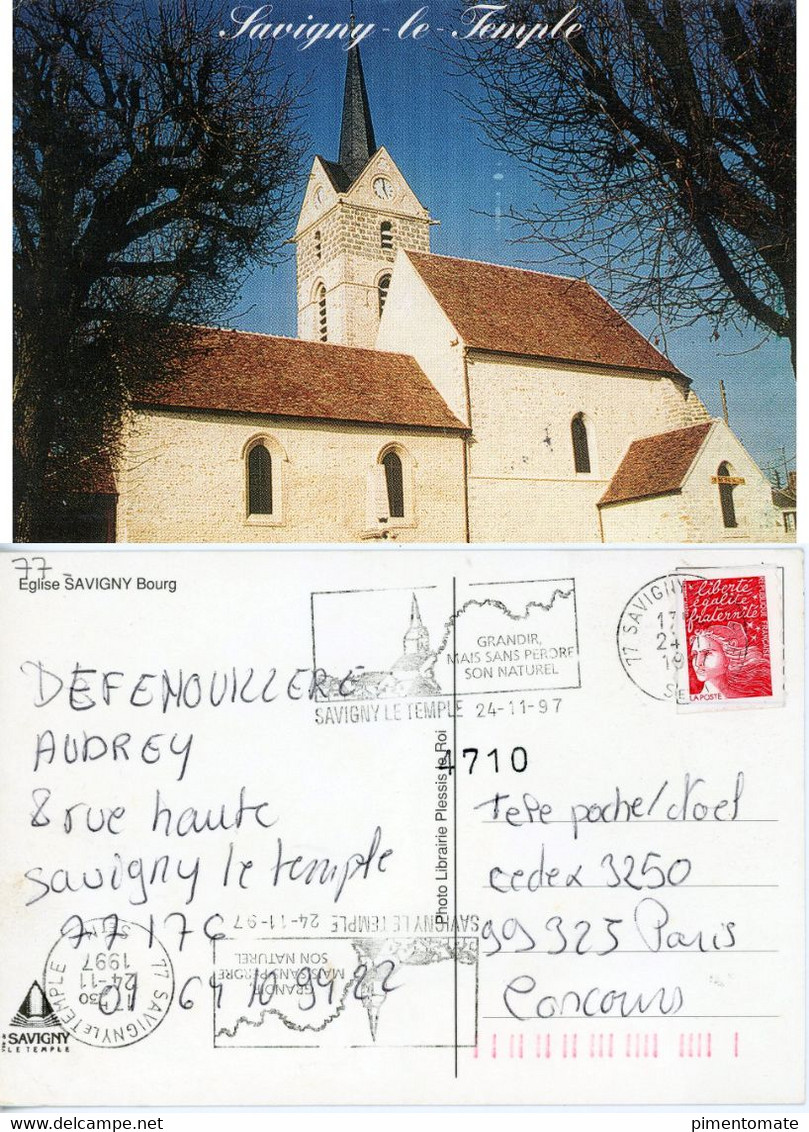 Savigny-le-Temple
77
Eglise SAVIGNY Bourg
GRANDIR,
MAIS SANS PERDRE
SON NATUREL
SAVIGNY LE TEMPLE 24-11-97
77 SAVIGNY
17
24
19
SE
liberté
égalité
fraternité
LA POSTE
DEFENOUILLERE
AUDREY
8 rue haute
Savigny le temple
77176
01 64 10 94 22
Photo Librairie Plessis le Roi
4710
Tele poche/Noel
cedex 3250
99325 Paris
Concours
SAVIGNY LE TEMPLE 24-11-97
GRANDIR,
MAIS SANS PERDRE
SON NATUREL
77 SAVIGNY LE TEMPLE
24-11
1997
SAVIGNY
LE TEMPLE
pimentomate
www.delcampe.net